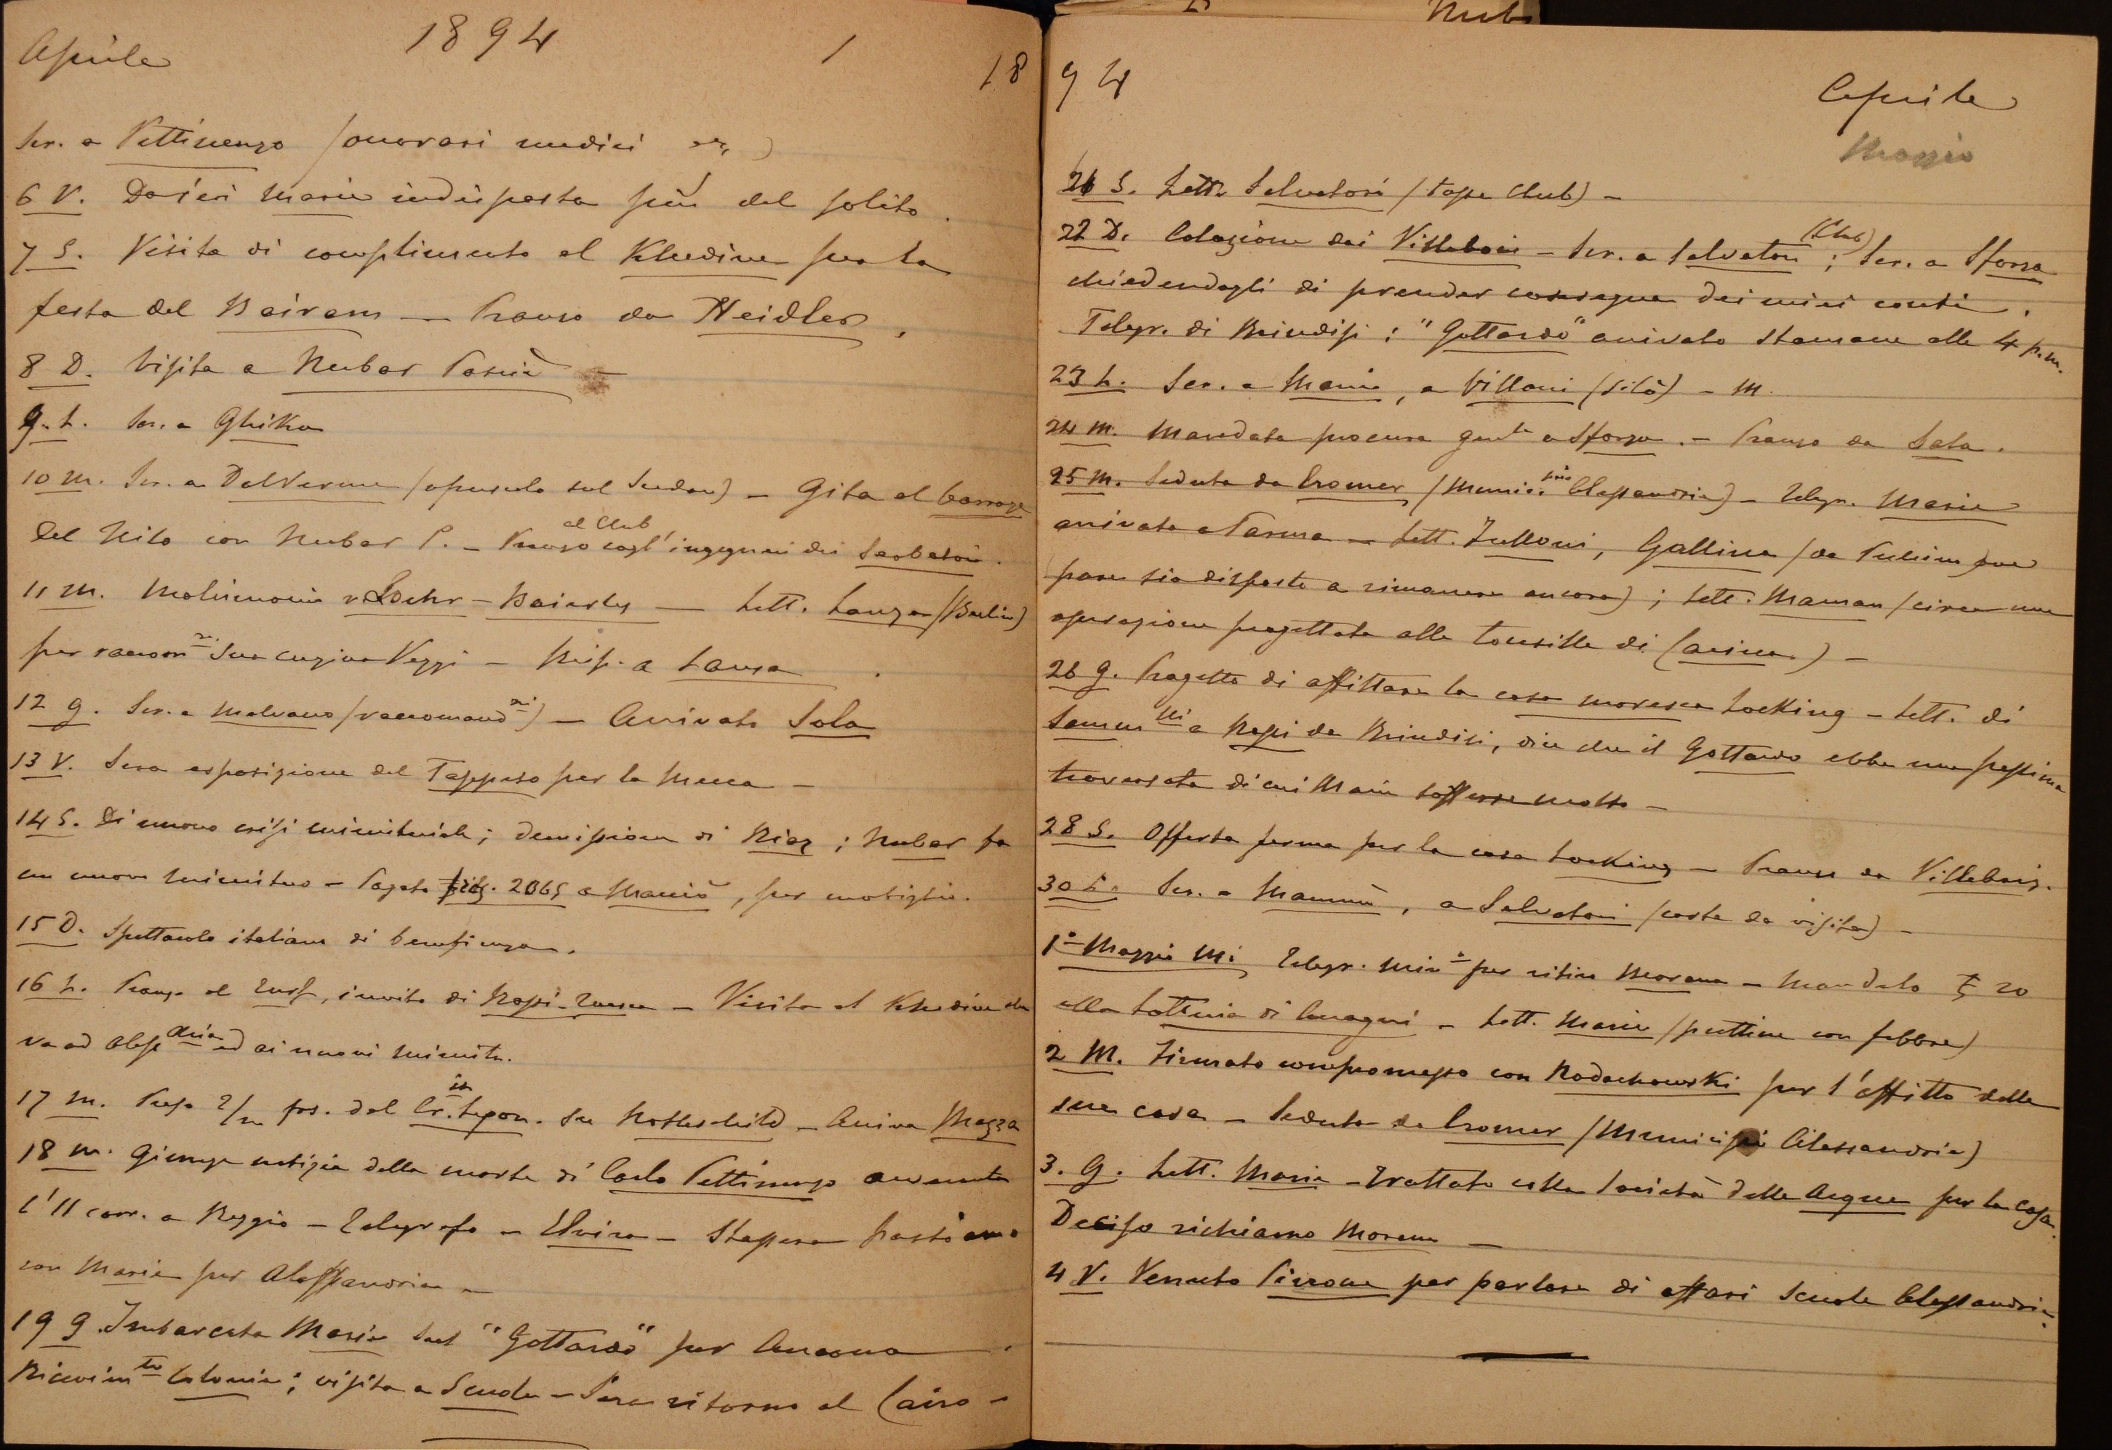 Aprile 1894 1
Scr. a Pettinengo (onorari medici ecc)
6 V. Da ieri Maria indisposta più del solito.
7 S. Visita di complimento al Khedive per la
festa del Bairam — Pranzo da Heidler.
8 D. Visita a Nubar Pascià —
9. L. Scr. a Ghika
10 M. Scr. a Dal Verme (opuscolo sul Sudan) — Gita al barrage
del Nilo con Nubar P. — Pranzo al Club cogl'ingegneri dei Serbatoi.
11 M. Matrimonio — Lett. Lanza (Berlin)
per raccom.ni sua cugina Veggi — Risp. a Lanza.
12 G. Scr. a Malvano (raccomand.ni) — Arrivato Sola
13 V. Sera esposizione del Tappeto per la Mecca —
14 S. Di nuovo crisi ministeriale; demissione di Riaz; Nubar fa
un nuovo ministero — Pagato 2065 a, per mobiglio.
15 D. Spettacolo italiano di beneficenza.
16 L. Pranzo al Turf, invito di Rossi — Visita al Khedive che
va ad Aless.dria ed ai nuovi ministri.
17 M. Preso pos. del Cr. su Rothschild — Arriva Mazza
18 M. Giunge notizia della morte di Carlo Pettinengo avvenuta
l'11 corr. a Reggio — Telegrafo a Elvira — Stassera partiamo
con Maria per Alessandria —
19 G. Imbarcata Maria sul "Gottardo" per Ancona.
Ricevim.to Colonia; visita a Scuole — Sera ritorno al Cairo —
1894 Aprile
Maggio
21 S. Lett. Salvatori (tassa Club) —
22 D. Colazione dai Villebois — Scr. a Salvatori (Club); Scr. a Sforza
chiedendogli di prender consegna dei miei conti.
Telegr. di Brindisi: "Gottardo" arrivato stamane alle 4 p.m.
23 L. Scr. a Maria, a Villari — M.
24 M. Mandata procura gen.le a Sforza. — Pranzo da Sala.
25 M. Seduta da Cromer (Munic.pio Alessandria) — Telegr. Maria
arrivata a Parma — Lett. Tulloni, Gallina (da Pekino ove
pare sia disposto a rimanere ancora); lett. Maman (circa una
operazione progettata alle tonsille di Carina) —
26 G. Progetto di affittare la casa moresca Locking — Lett. di
a Rossi da Brindisi, dice che il Gottardo ebbe una pessima
traversata di cui Maria sofferse molto —
28 S. Offerta ferma per la casa Locking — Pranzo da Villebois.
30 L. Scr. a Maman, a Salvatori (carte da visita) —
1° Maggio M. Telegr. Min.o per ritiro Morana — Mandato 20
alla Lotteria di Anagni — Lett. Maria (puttina con febbre)
2 M. Firmato compromesso con Rodochowski per l'affitto della
sua casa — Seduta da Cromer (Municipio Alessandria)
3. G. Lett. Maria — Trattato colla Società delle Acque per la casa.
Deciso richiamo Morana —
4 V. Venuto Pirrone per parlare di affari scuole Alessandria.